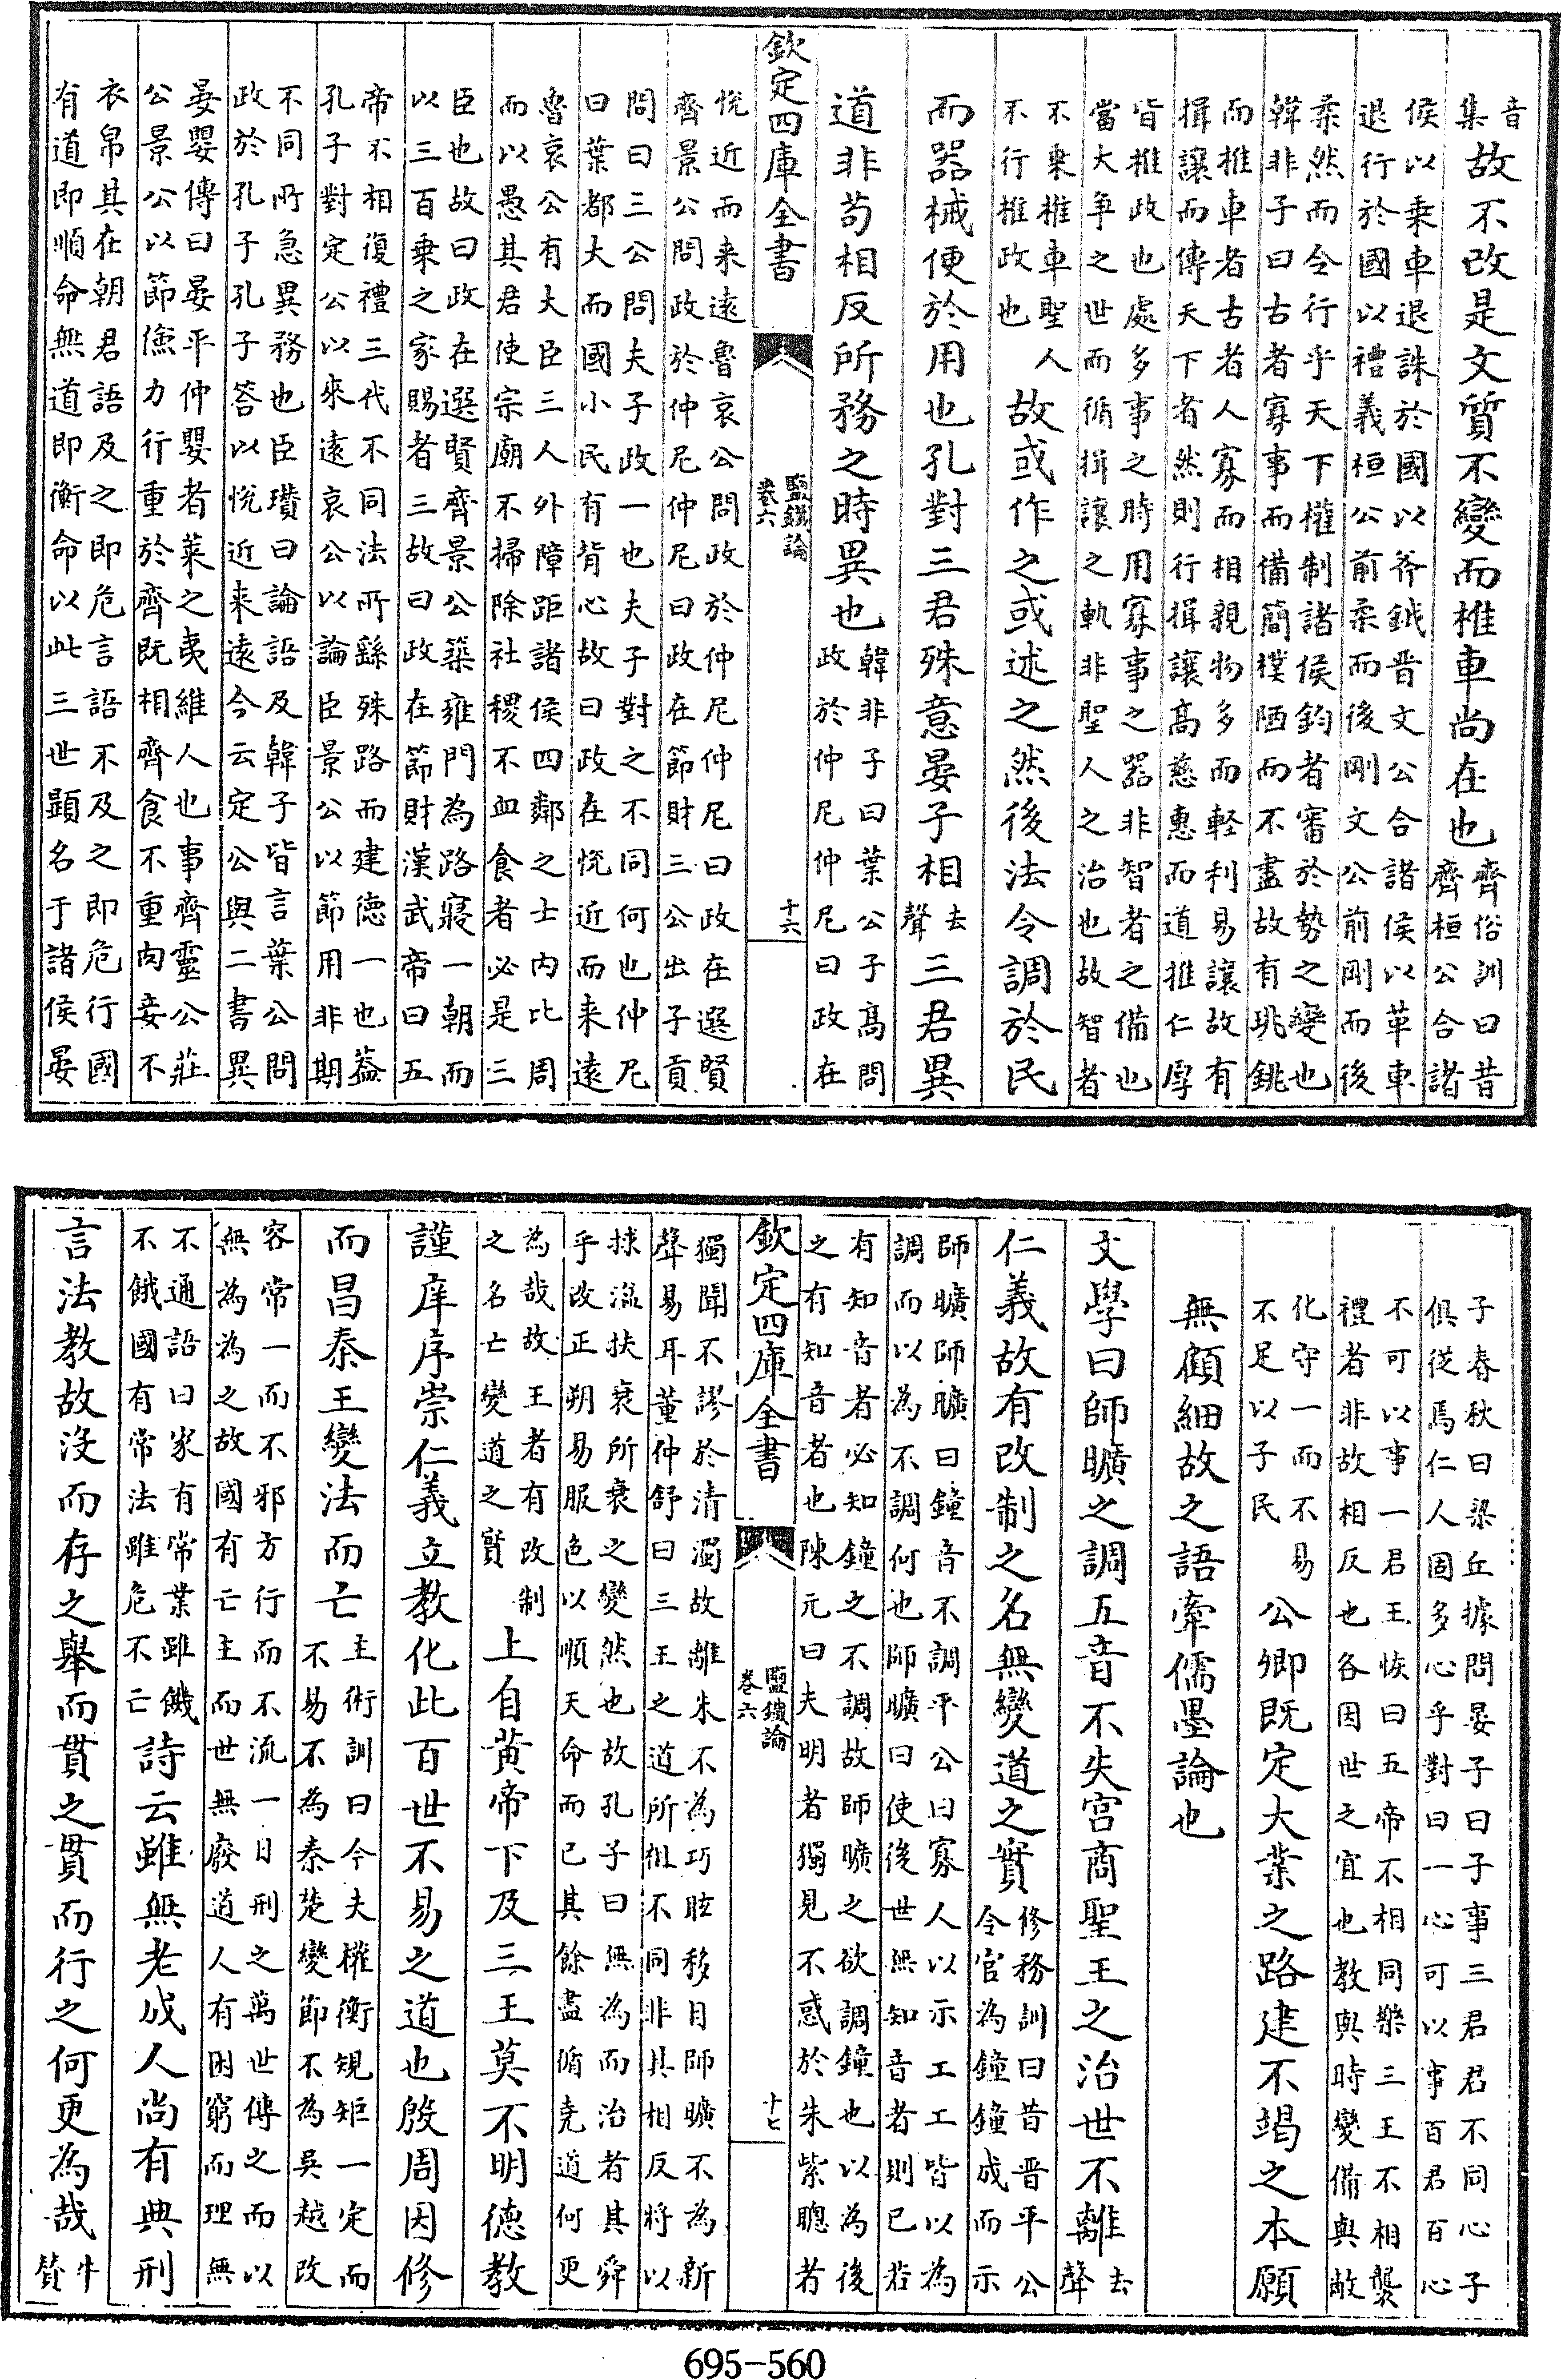 音集故不改是文質不變而椎車尚在也齊俗訓曰昔齊桓公合諸
侯以乘車退誅於國以斧鉞晋文公合諸侯以革車
退行於國以禮義桓公前柔而後剛文公前剛而後
柔然而令行乎天下權制諸侯鈞者審於勢之變也
韓非子曰古者寡事而備簡樸陋而不盡故有珧銚
而推車者古者人寡而相親物多而輕利易讓故有
揖讓而傳天下者然則行揖讓髙慈惠而道推仁厚
皆推政也處多事之時用寡事之器非智者之備也
當大爭之世而循揖讓之軌非聖人之治也故智者
不乘椎車聖人不行推政也故或作之或述之然後法令調於民
而器械便於用也孔對三君殊意晏子相去聲三君異
道非茍相反所務之時異也韓非子曰葉公子髙問政於仲尼仲尼曰政在
欽定四庫全書 鹽鐵論卷六 十六
悅近而来遠魯哀公問政於仲尼仲尼曰政在選賢
齊景公問政於仲尼仲尼曰政在節財三公出子貢
問曰三公問夫子政一也夫子對之不同何也仲尼
曰葉都大而國小民有背心故曰政在悅近而来遠
魯哀公有大臣三人外障距諸侯四鄰之士内比周
而以愚其君使宗廟不掃除社稷不血食者必是三
臣也故曰政在選賢齊景公築雍門為路寢一朝而
以三百乘之家賜者三故曰政在節財漢武帝曰五
帝不相復禮三代不同法所繇殊路而建徳一也葢
孔子對定公以來遠哀公以論臣景公以節用非期
不同所急異務也臣瓚曰論語及韓子皆言葉公問
政於孔子孔子答以悅近来遠今云定公與二書異
晏嬰傳曰晏平仲嬰者萊之夷維人也事齊靈公莊
公景公以節儉力行重於齊既相齊食不重肉妾不
衣帛其在朝君語及之即危言語不及之即危行國
有道即順命無道即衡命以此三世顯名于諸侯晏
子春秋曰梁丘據問晏子曰子事三君君不同心子
俱從焉仁人固多心乎對曰一心可以事百君百心
不可以事一君王恢曰五帝不相同樂三王不相襲
禮者非故相反也各因世之宜也教與時變備與敵
化守一而不易不足以子民公卿既定大業之路建不竭之本願
無顧細故之語牽儒墨論也
文學曰師曠之調五音不失宫商聖王之治世不離去聲
仁義故有改制之名無變道之實修務訓曰昔晋平公令官為鐘鐘成而示
師曠師曠曰鐘音不調平公曰寡人以示工工皆以為
調而以為不調何也師曠曰使後世無知音者則已若
有知音者必知鐘之不調故師曠之欲調鐘也以為後
之有知音者也陳元曰夫明者獨見不惑於朱紫聰者
欽定四庫全書 鹽鐵論卷六 十七
獨聞不謬於清濁故離朱不為巧眩移目師曠不為新
聲易耳董仲舒曰三王之道所祖不同非其相反將以
捄溢扶衰所衰之變然也故孔子曰無為而治者其舜
乎改正朔易服色以順天命而已其餘盡循堯道何更
為哉故王者有改制之名亡變道之實上自黄帝下及三王莫不明德教
謹庠序崇仁義立教化此百世不易之道也殷周因修
而昌秦王變法而亡主術訓曰今夫權衡規矩一定而不易不為秦楚變節不為吳越改
容常一而不邪方行而不流一日刑之萬世傳之而以
無為為之故國有亡主而世無廢道人有困窮而理無
不通語曰家有常業雖饑不餓國有常法雖危不亡詩云雖無老成人尚有典刑
言法教故没而存之舉而貫之貫而行之何更為哉牛贊
695-560